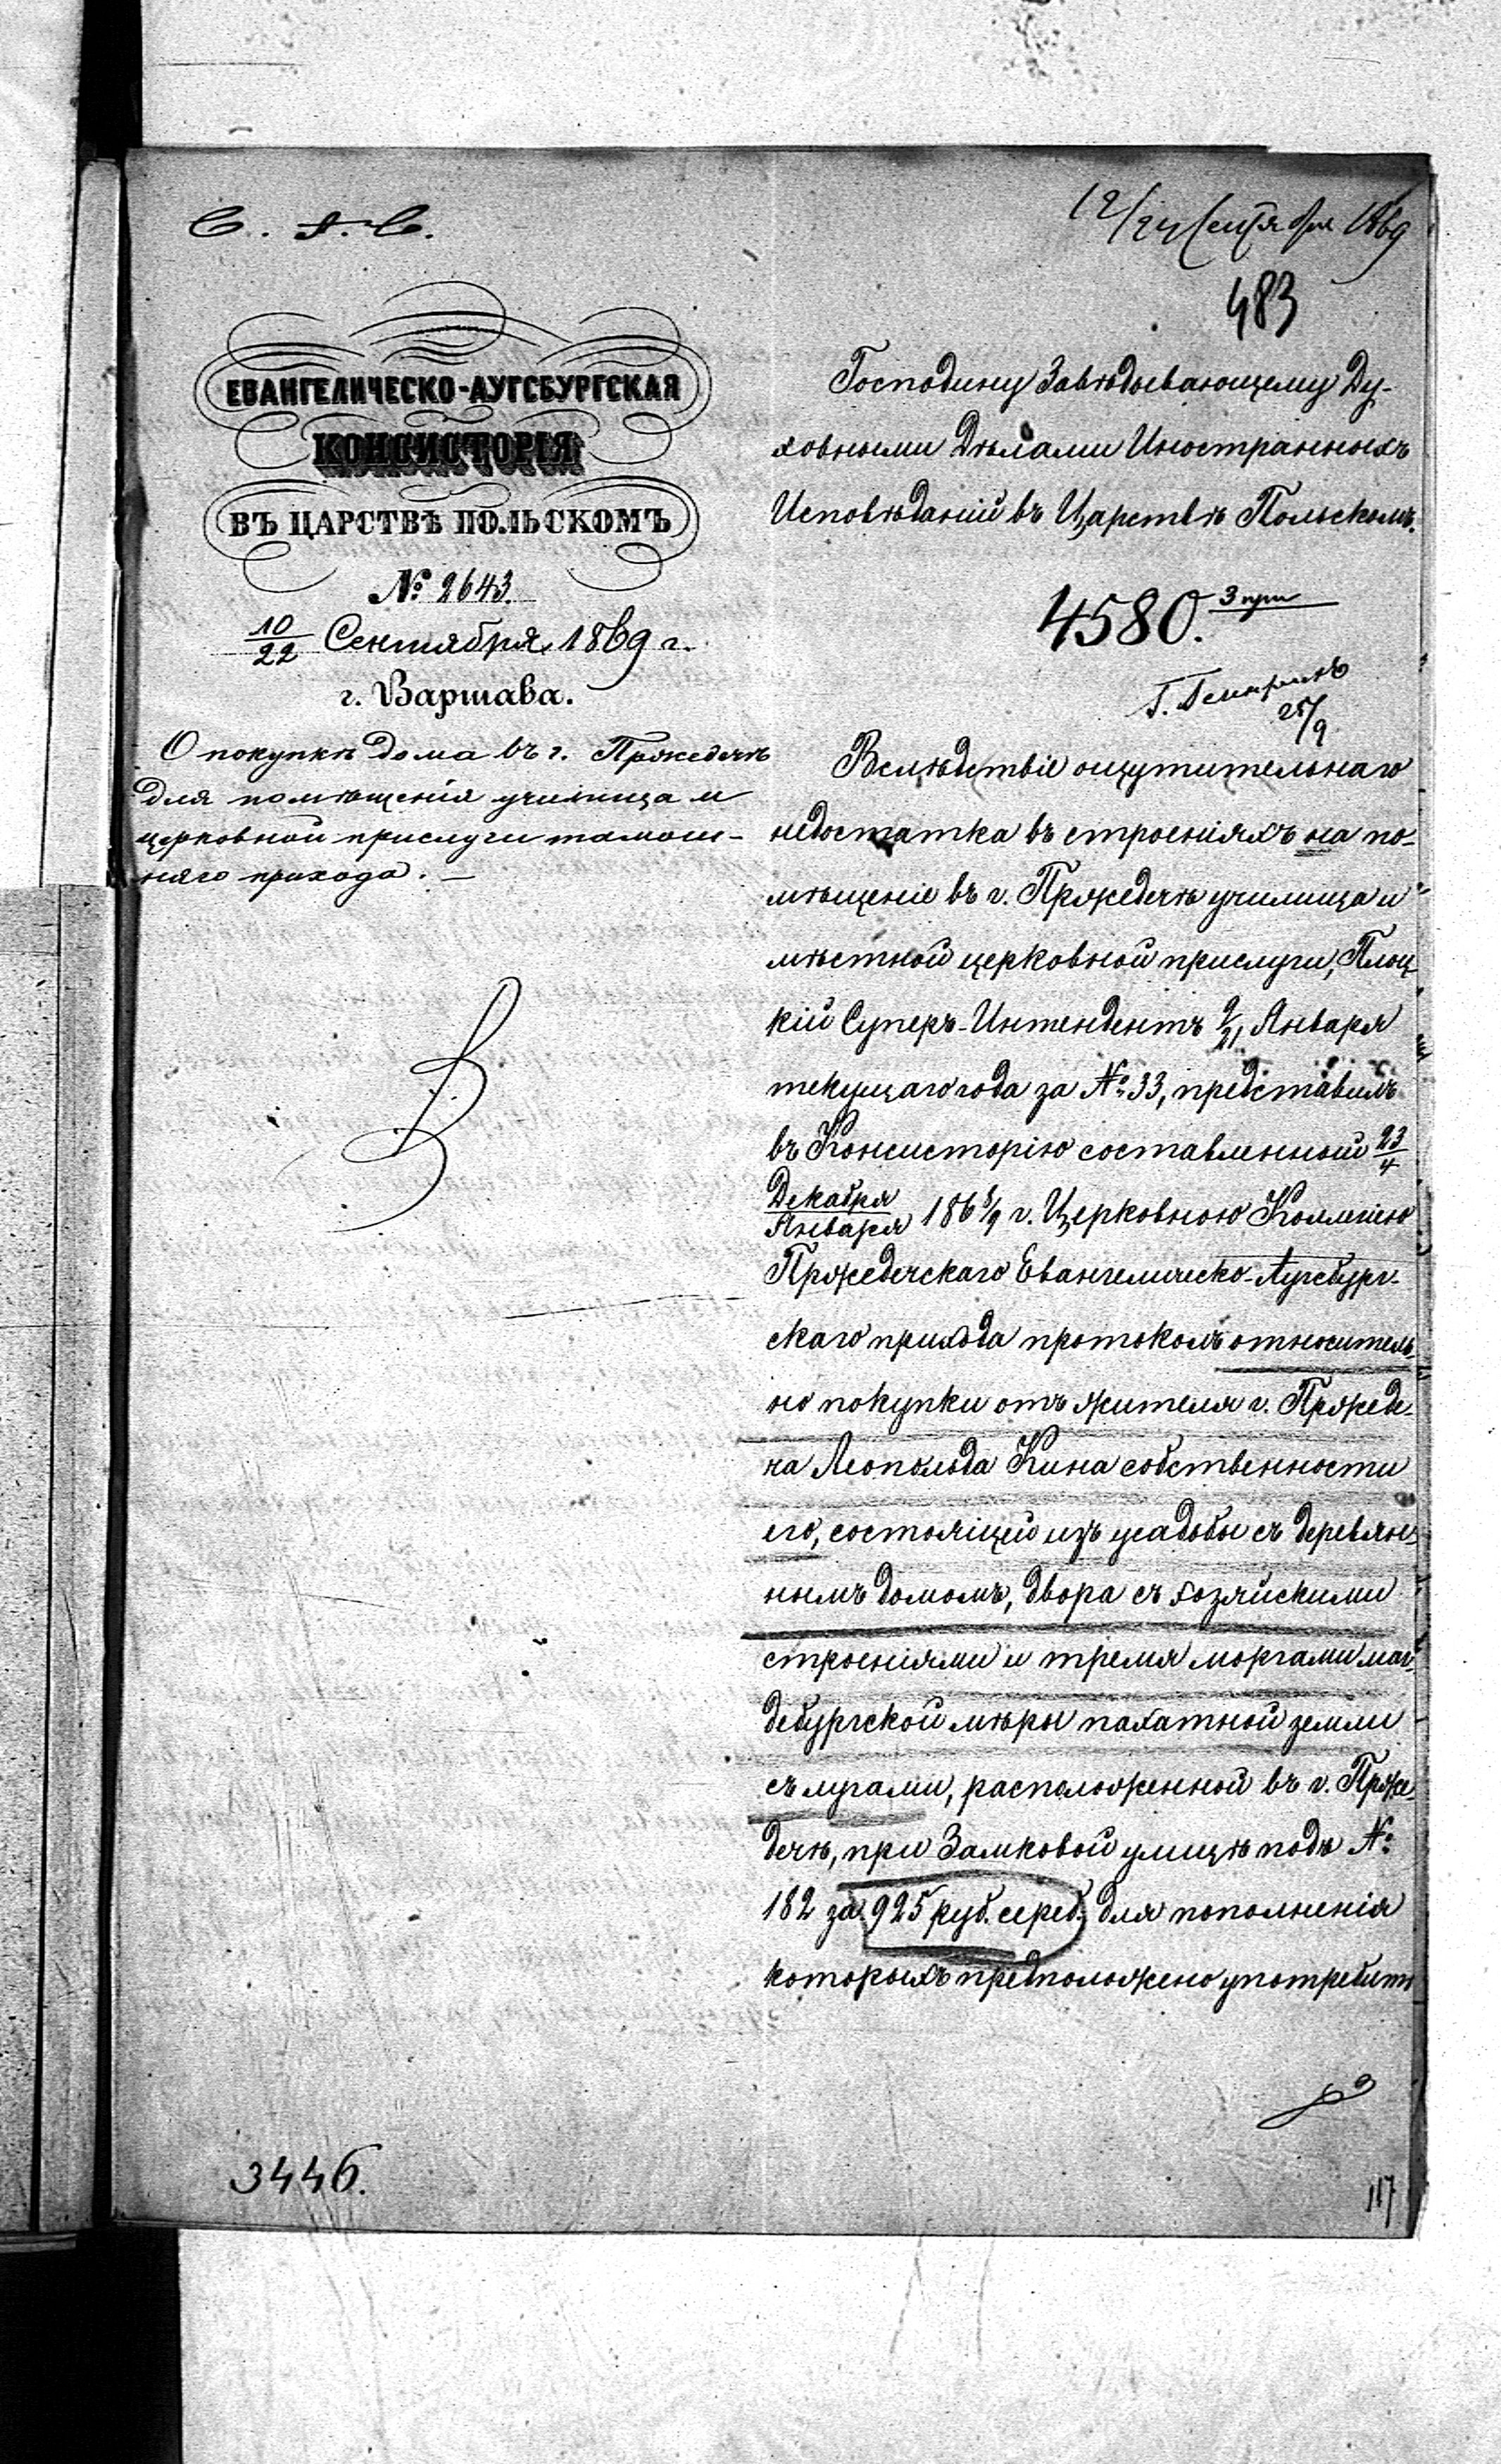 С. А. С.
12/24 Сентября 1869
483
ЕВАНГЕЛИЧЕСКО-АУГСБУРГСКАЯ
КОНСИСТОРІЯ
ВЪ ЦАРСТВѢ ПОЛЬСКОМЪ
№ 2643.
10/22 Сентября 1869 г.
г. Варшава.
О покупкѣ дома въ г. Пржедечѣ
для помѣщенія училища и
церковной прислуги тамош-
няго прихода. —
3446.
Господину Завѣдывающему Ду-
ховными Дѣлами Иностранныхъ
Исповѣданій въ Царствѣ Польскомъ.
4580. 3 при
Г.
25/9
Вслѣдствіе ощутительнаго
недостатка въ строеніяхъ на по-
мѣщеніе въ г. Пржедечѣ училища и
мѣстной церковной прислуги, Плоц-
кій Суперъ-Интендентъ 9/21 Января
текущаго года за № 33, представилъ
въ Консисторію составленный 23/4
Декабря/Января 186 8/9 г. Церковною Коллегіею
Пржедечскаго Евангелическо-Аугсбург-
скаго прихода протоколъ относитель-
но покупки отъ жителя г. Пржеде-
ча Леопольда Кина собственности
его, состоящей изъ усадьбы съ деревян-
нымъ домомъ, двора съ хозяйскими
строеніями и тремя моргами маг-
дебургской мѣры пахатной земли
съ лугами, расположенной въ г. Прже-
дечѣ, при Замковой улицѣ подъ №
182 за 925 руб. сереб. для пополненія
которыхъ предположено употребить
117